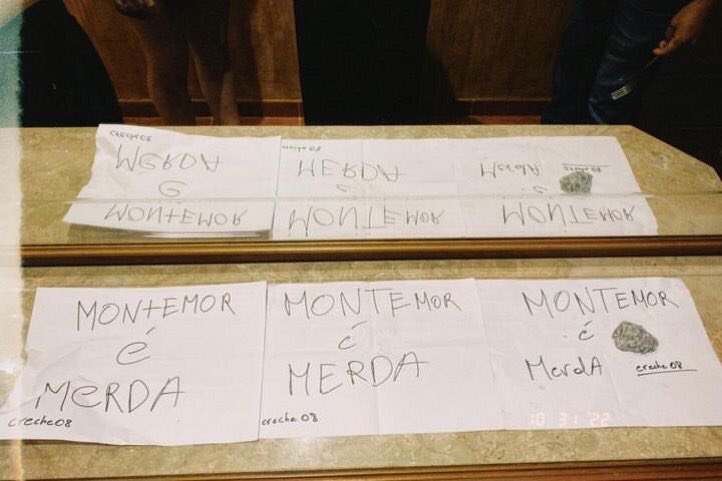 MONTEMOR
é
MeRDA
creche08
MONTEMOR
é
MERDA
creche08
MONTEMOR
é
MerdA
creche08
10 31 '22